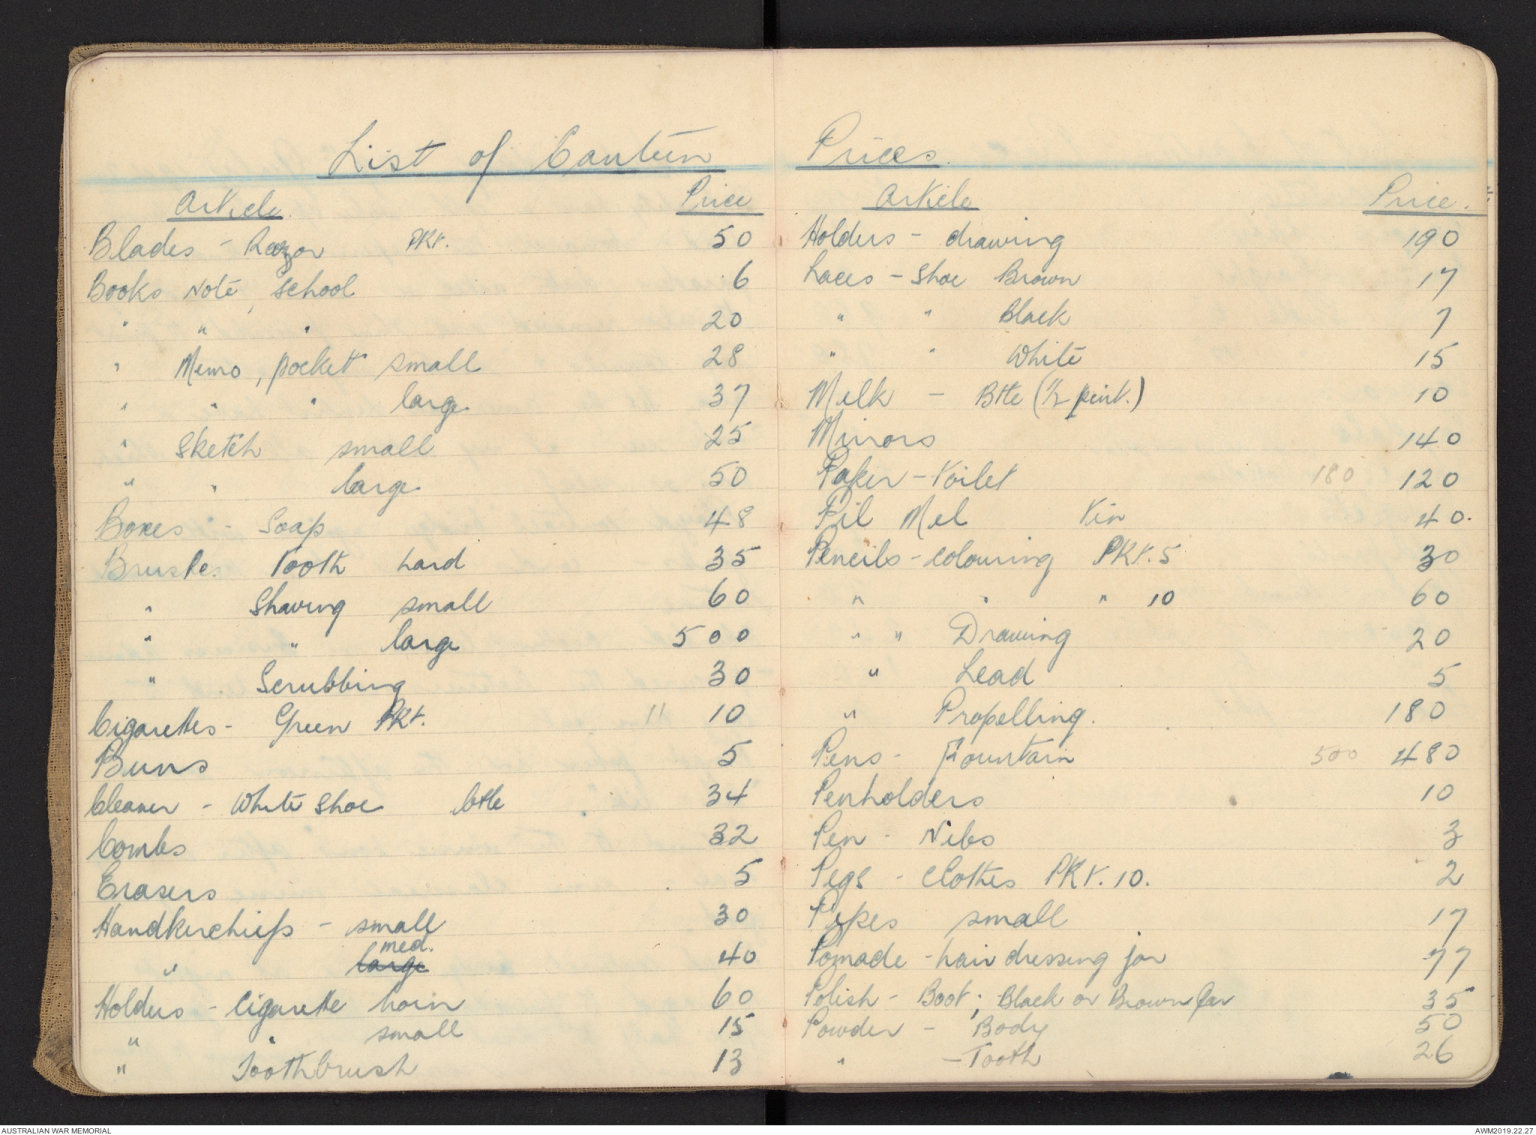 List of Canteen Prices.
Article. Price
Blades - Razor PKt. 50
Books Note, School 6
" " " 20
" Memo, pocket small 28
" " " large 37
" Sketch small 25
" " large 50
Boxes - Soap 48
Brushes. Tooth hard 35
" Shaving small 60
" " large 500
" Scrubbing 30
Cigarettes - Green PKt. 11 10
Buns 5
Cleaner - White Shoe btle 34
Combs 32
Erasers 5
Handkerchiefs - small 30
" large med. 40
Holders - Cigarette horn 60
" " small 15
" Toothbrush 13
Article Price.
Holders - drawing 190
Laces - Shoe Brown 17
" " Black 7
" " White 15
Melk - Btle (1/2 pint.) 10
Mirrors 140
Paper - Toilet 180 120
Pil Mel Tin 40.
Pencils - colouring PKt. 5 30
" " " 10 60
" " Drawing 20
" Lead 5
" Propelling. 180
Pens - Fountain 500 480
Penholders 10
Pen - Nibs 3
Pegs - clothes PKt. 10. 2
Pipes small 17
Pomade - hair dressing jar 77
Polish - Boot; Black or Brown jar 35
Powder - Body 50
" - Tooth 26
AUSTRALIAN WAR MEMORIAL
AWM2019.22.27